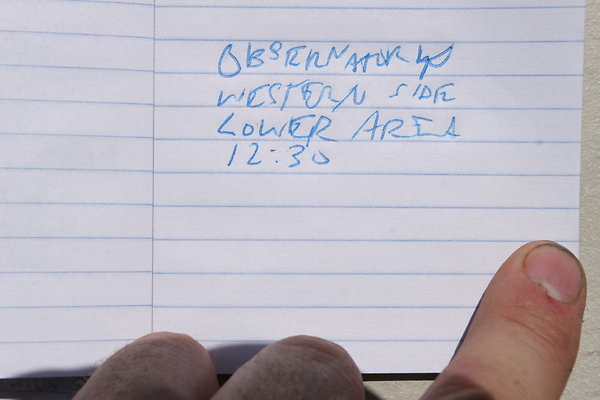 OBSERVATORY
WESTERN SIDE
LOWER AREA
12:30